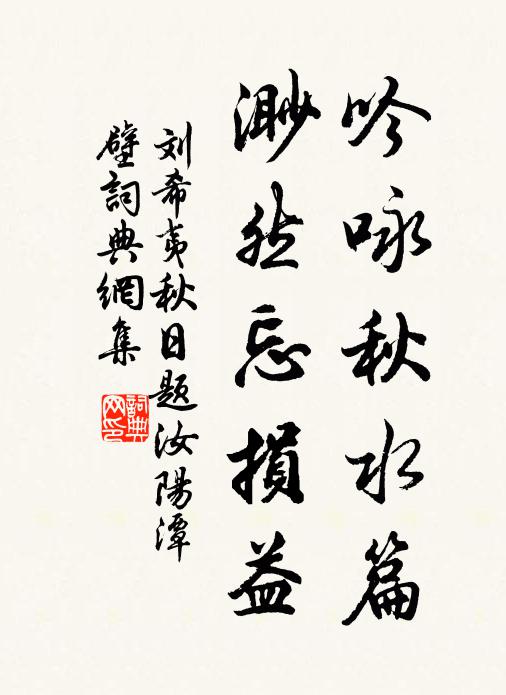 吟咏秋水篇
渺然忘損益
刘希夷秋日题汝陽潭
壁詞典網集
詞典网印